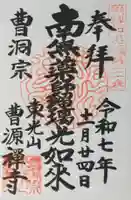 奉拝
令和七年
十一月廿四日
南無薬師瑠璃光如来
東光山
曹源禅寺
曹洞宗